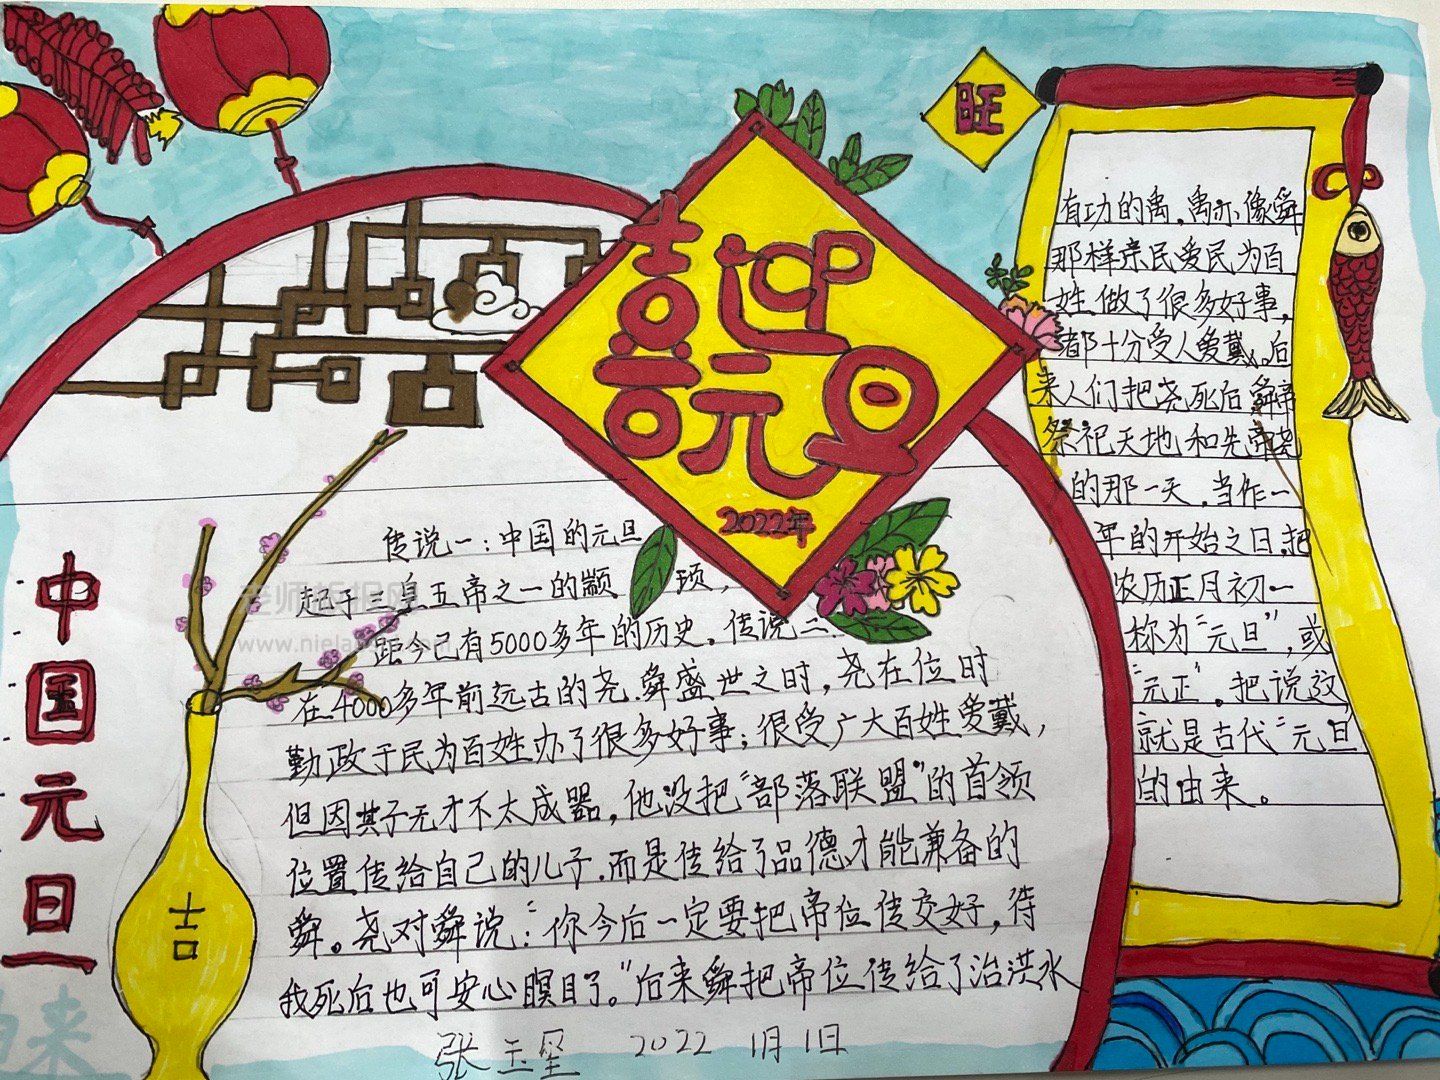 旺
喜迎
喜元旦
2022年
中国元旦
吉
传说一:中国的元旦
起于三皇五帝之一的颛 顼,
距今已有5000多年的历史。传说二:
在4000多年前远古的尧舜盛世之时,尧在位时
勤政于民为百姓办了很多好事;很受广大百姓爱戴,
但因其子无才不太成器,他没把“部落联盟”的首领
位置传给自己的儿子,而是传给了品德才能兼备的
舜。尧对舜说:“你今后一定要把帝位传交好,待
我死后也可安心瞑目了。”后来舜把帝位传给了治洪水
有功的禹,禹亦像舜
那样亲民爱民为百
姓做了很多好事,
都十分受人爱戴。后
来人们把尧死后,舜帝
祭祀天地和先帝尧
的那一天,当作一
年的开始之日,把
农历正月初一
称为“元旦”,或
“元正”。把说这
就是古代“元旦”
的由来。
2022 1月1日
来
老师板报网